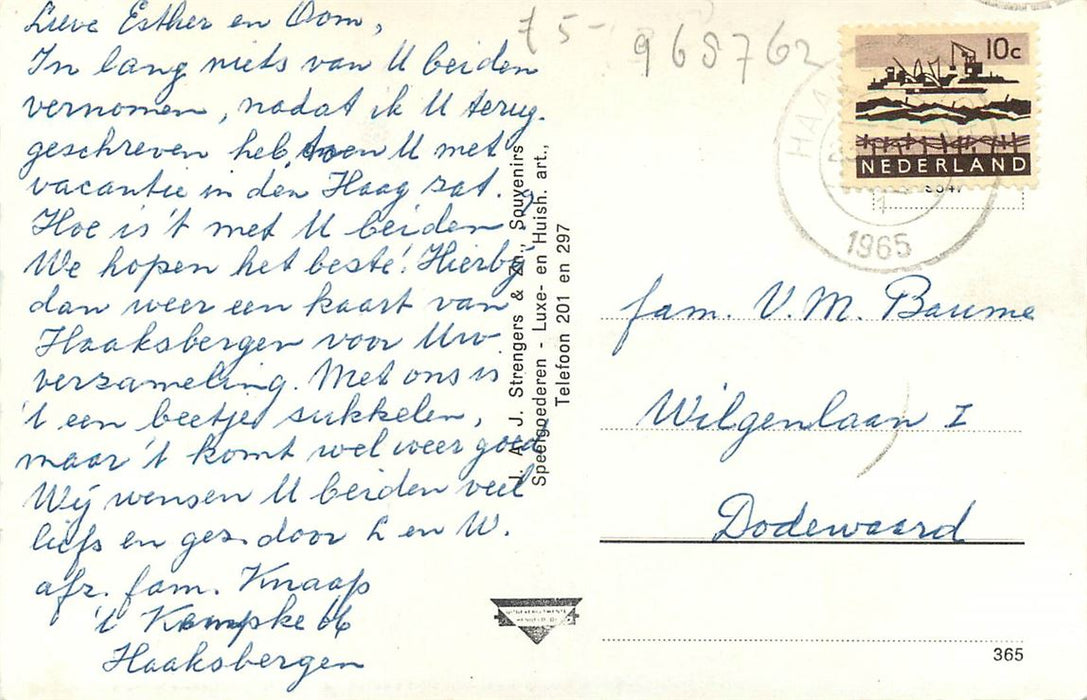 Lieve Esther en Oom,
In lang niets van U beiden
vernomen, nadat ik U terug-
geschreven heb, toen U met
vacantie in den Haag zat.
Hoe is 't met U beiden?
We hopen het beste! Hierbij
dan weer een kaart van
Haaksbergen voor Uw
verzameling. Met ons is
't een beetje sukkelen,
maar 't komt wel weer goed.
Wij wensen U beiden veel
liefs en gez. door L en W.
afz. fam. Knaap
't Kempke 66
Haaksbergen
75-
968762
10c
NEDERLAND
1965
J. A. J. Strengers & Zn., Souvenirs
Speelgoederen - Luxe- en Huish. art.,
Telefoon 201 en 297
fam. V. M. Baume
Wilgenlaan I
Dodewaard
365